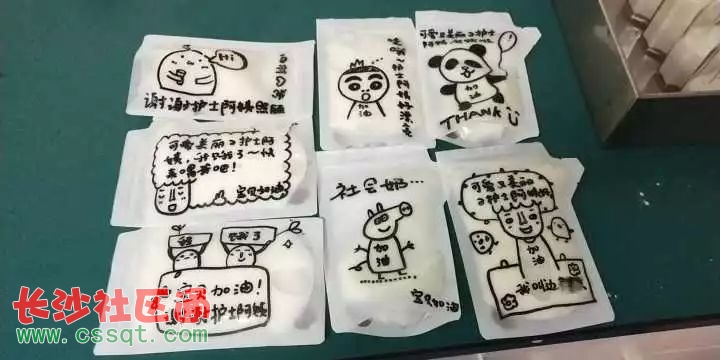 Hi
谢谢护士阿姨照顾
加油
可爱又美丽の护士
加油
THANK U
可爱美丽の护士阿
姨，我只我了～快
来喂我吧！
宝贝加油
社会奶…
加油
宝贝加油
可爱又美丽
の护士阿姨
加油
我叫边
饿了
宝贝加油！
护士阿姨
长沙社区通
www.cssqt.com